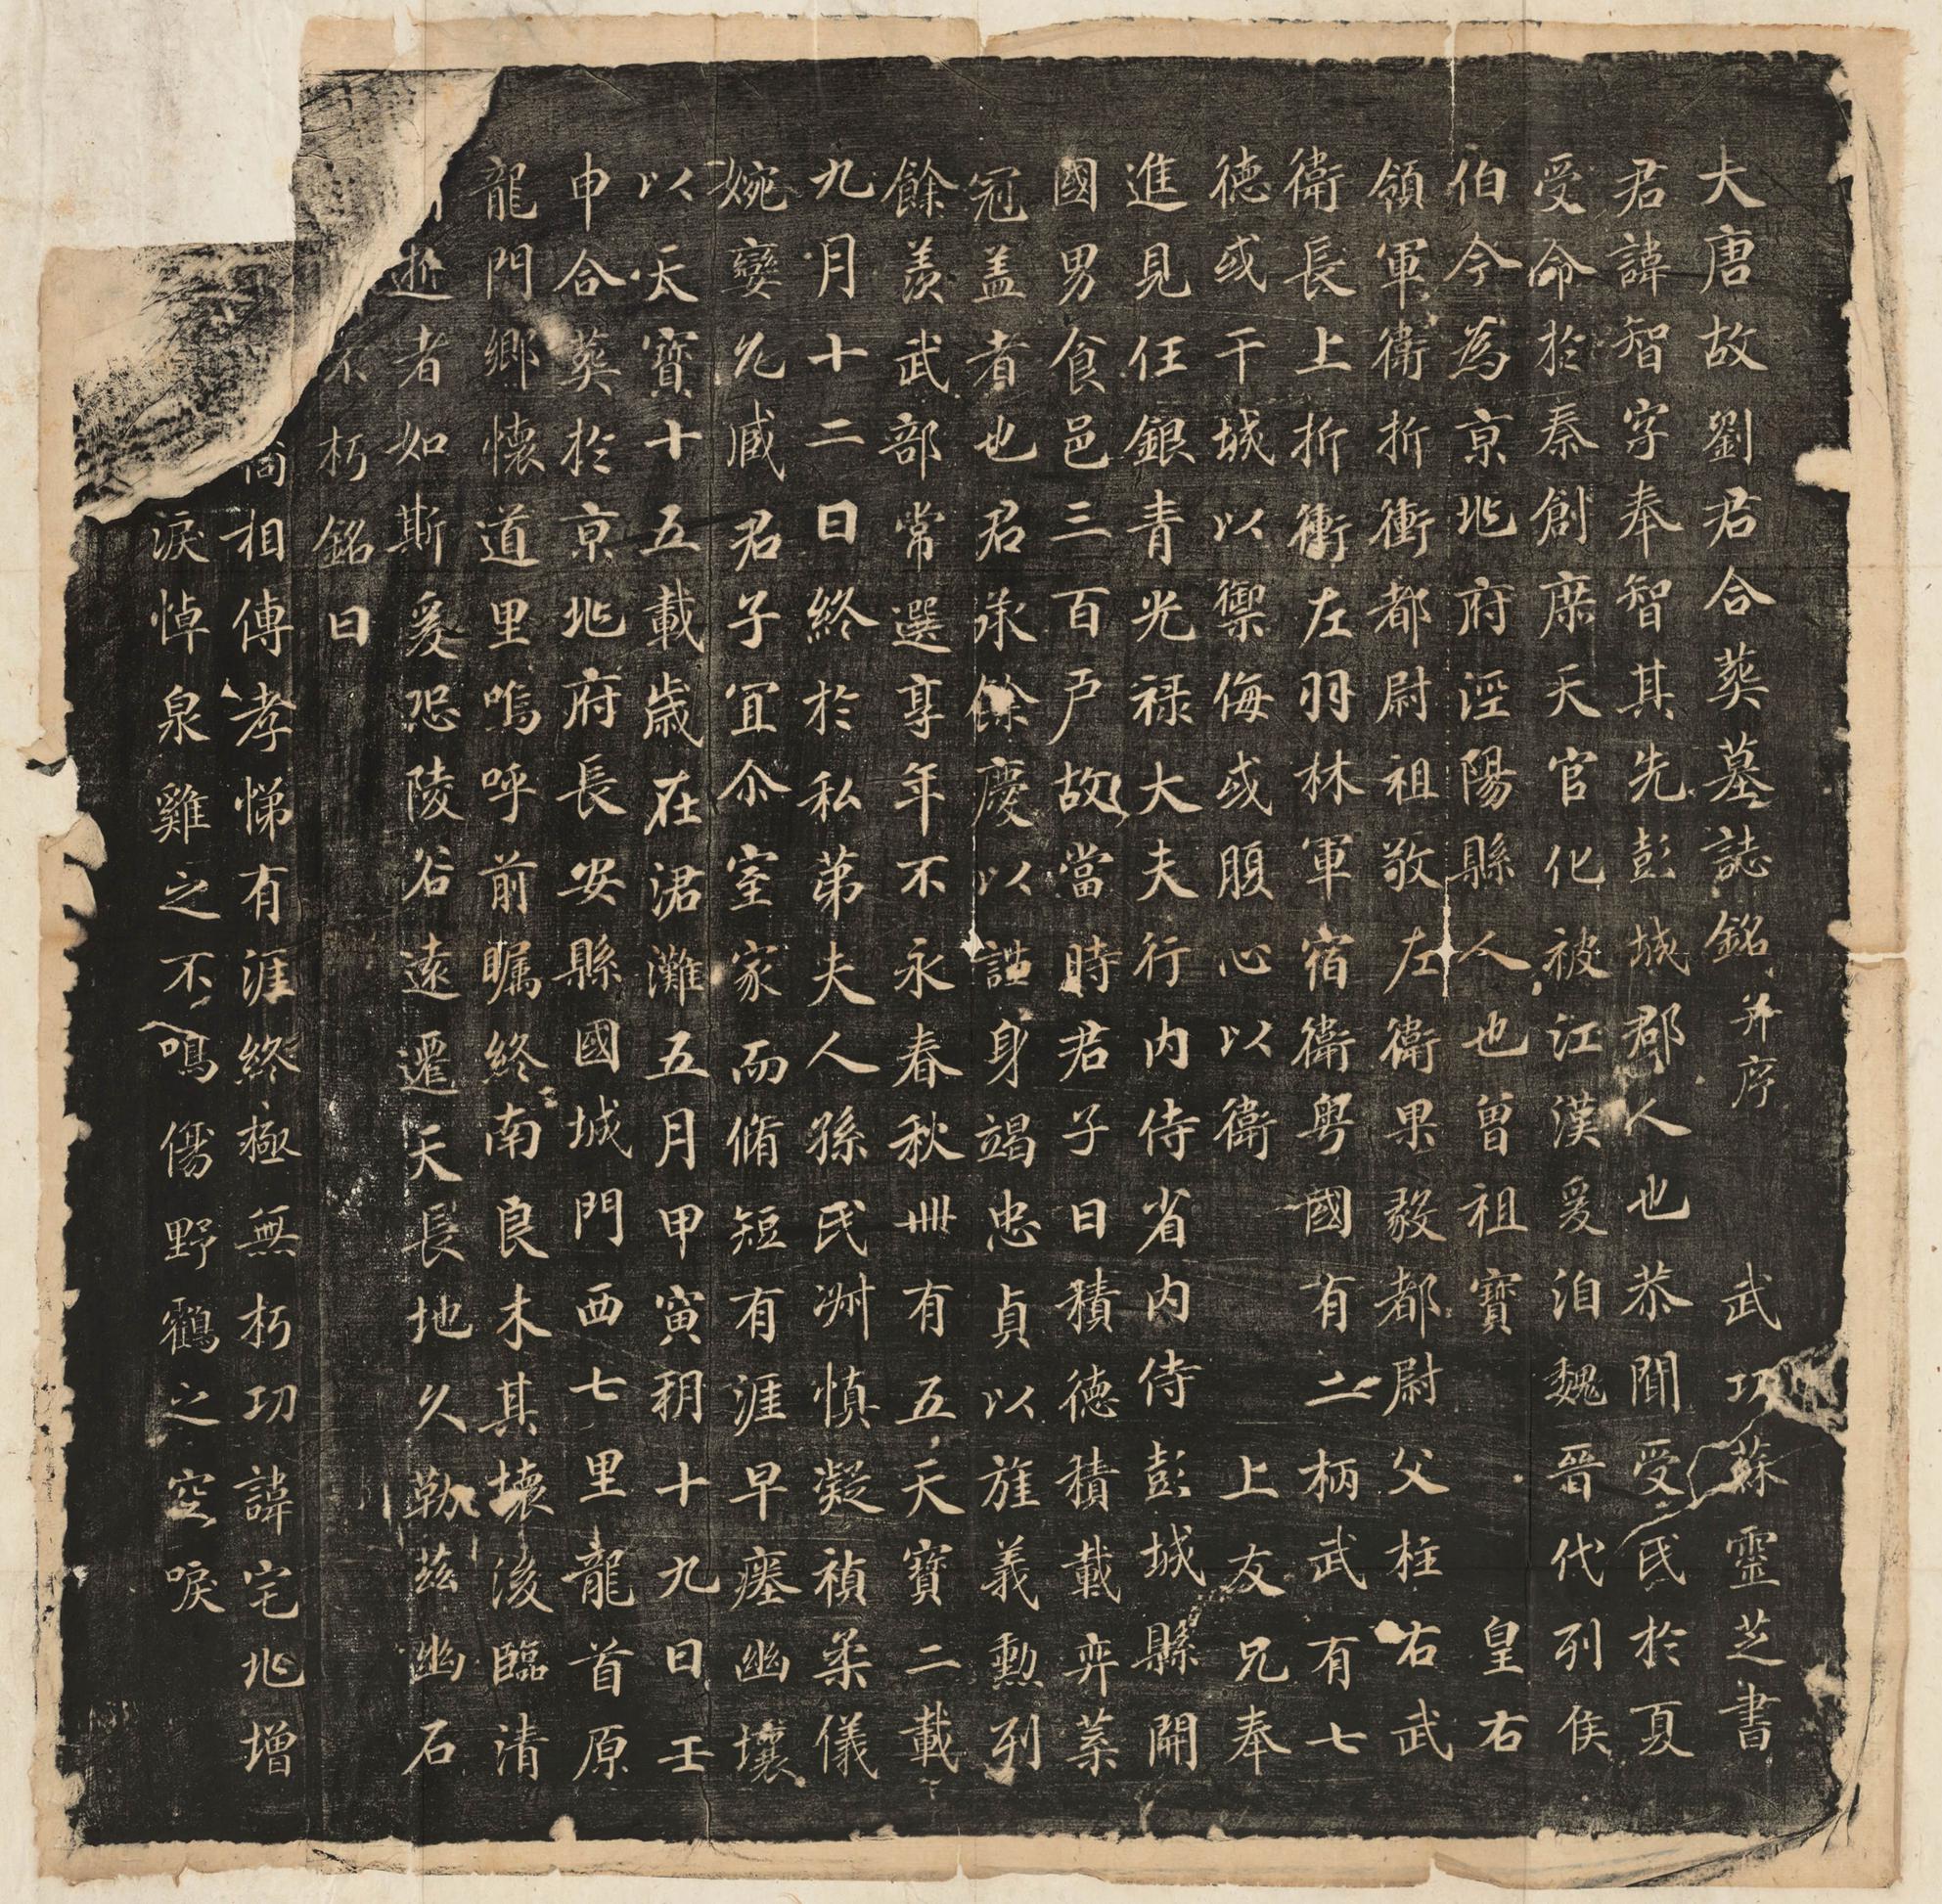 大唐故劉君合葬墓誌銘并序 武功蘇靈芝書
君諱智字奉智其先彭城郡人也恭聞受氏於夏
受命於秦創庶天官化被江漢爰洎魏晉代列侯
伯今為京兆府涇陽縣人也曾祖寶 皇右
領軍衛折衝都尉祖敬左衛果毅都尉父柱右武
衛長上折衝左羽林軍宿衛粤國有二柄武有七
德或干城以禦侮或腹心以衛 上友兄奉
進見任銀青光祿大夫行内侍省内侍彭城縣開
國男食邑三百户故當時君子日積德積載弈葉
冠盖者也君承餘慶以謹身竭忠貞以旌義勳列
餘羨武部常選享年不永春秋卌有五天寶二載
九月十二日終於私第夫人孫氏淋慎凝禎柔儀
婉孌允臧君子冝尒室家而脩短有涯早瘞幽壤
以天寶十五載歲在涒灘五月甲寅朔十九日壬
申合葵於京兆府長安縣國城門西七里龍首原
龍門鄉懷道里嗚呼前矚終南良木其壞後臨清
逝者如斯爰恐陵谷遠遷天長地久勒兹幽石
不朽銘曰
相傳孝悌有涯終極無朽功諱宅兆增
淚悼泉雞之不鳴傷野鸖之空唳